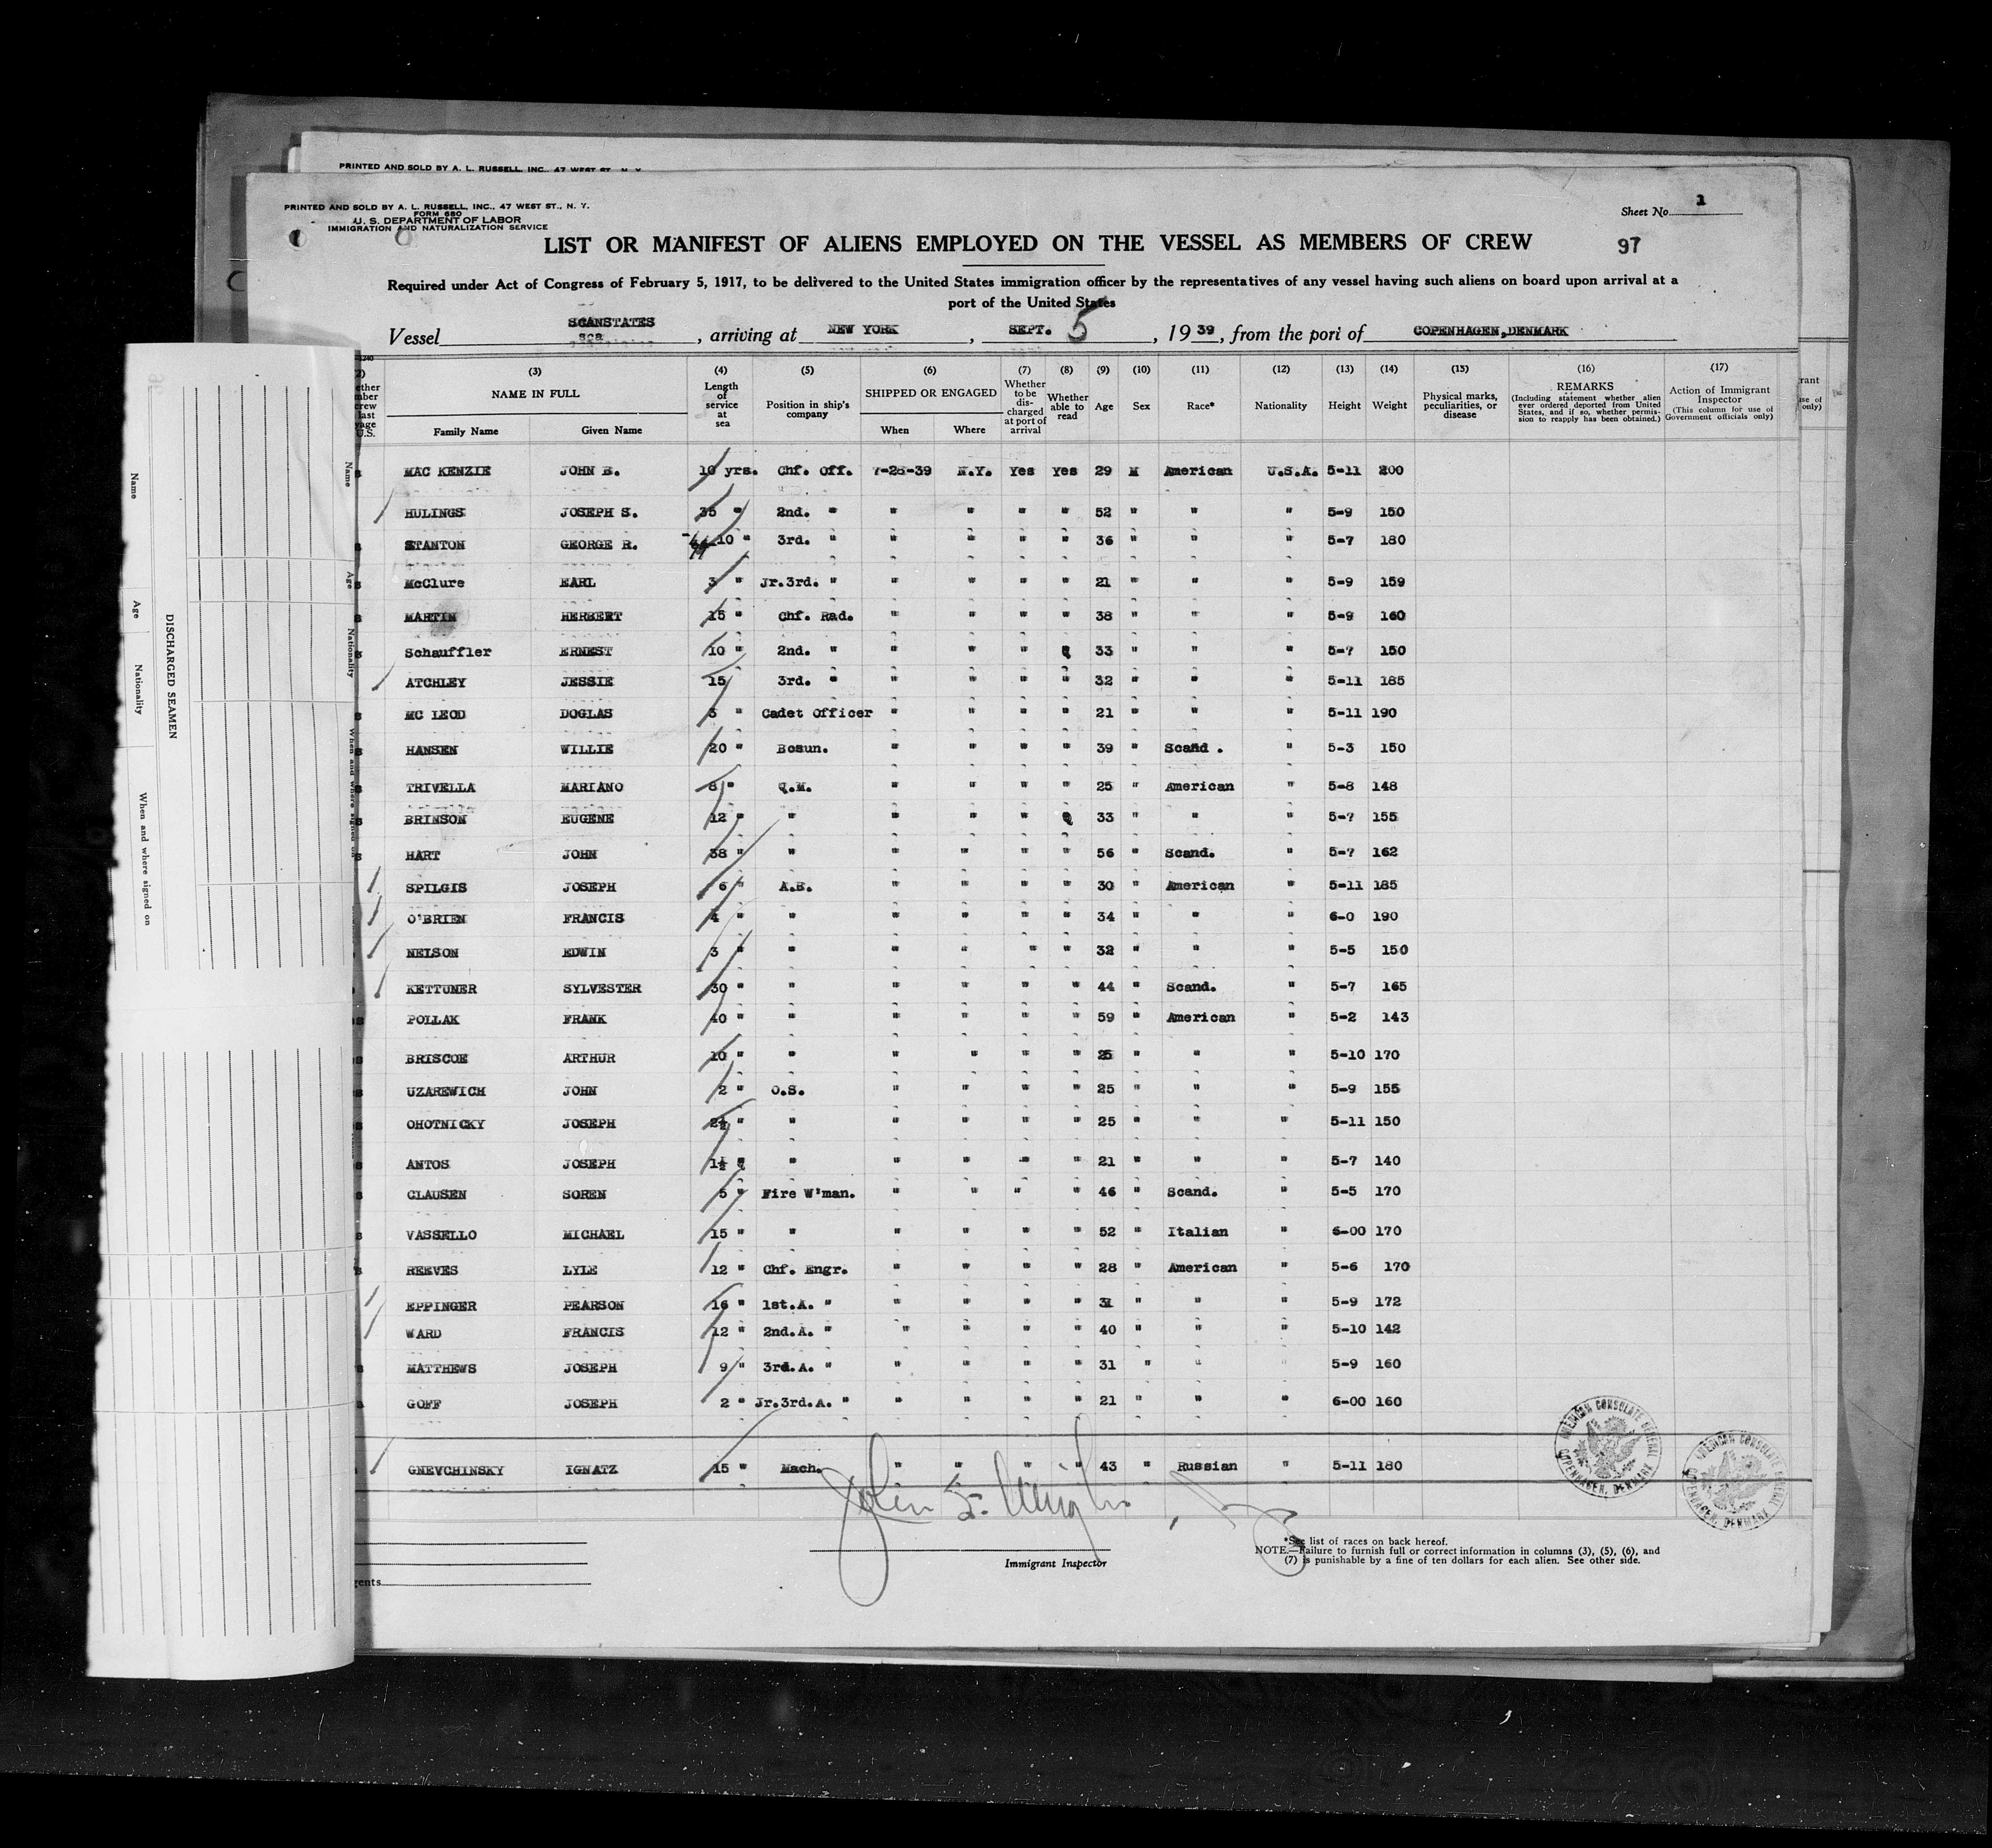 PRINTED AND SOLD BY A. L. RUSSELL, INC., 47 WEST ST., N. Y.
PRINTED AND SOLD BY A. L. RUSSELL, INC., 47 WEST ST., N. Y.
FORM 680
U. S. DEPARTMENT OF LABOR
IMMIGRATION AND NATURALIZATION SERVICE
Sheet No. 1
LIST OR MANIFEST OF ALIENS EMPLOYED ON THE VESSEL AS MEMBERS OF CREW
97
Required under Act of Congress of February 5, 1917, to be delivered to the United States immigration officer by the representatives of any vessel having such aliens on board upon arrival at a
port of the United States
Vessel SCANSTATES sca, arriving at NEW YORK, SEPT. 5, 1939, from the port of COPENHAGEN, DENMARK
(3) (4) (5) (6) (7) (8) (9) (10) (11) (12) (13) (14) (15) (16) (17)
NAME IN FULL Length of service at sea Position in ship's company SHIPPED OR ENGAGED Whether to be discharged at port of arrival Whether able to read Age Sex Race* Nationality Height Weight Physical marks, peculiarities, or disease REMARKS (Including statement whether alien ever ordered deported from United States, and if so, whether permission to reapply has been obtained.) Action of Immigrant Inspector (This column for use of Government officials only)
Family Name Given Name When Where
MAC KENZIE JOHN B. 10 yrs. Chf. Off. 7-28-39 N.Y. Yes Yes 29 M American U.S.A. 5-11 200
HULINGS JOSEPH S. 35 " 2nd. " " " " " 52 " " " 5-9 150
STANTON GEORGE R. 10 " 3rd. " " " " " 36 " " " 5-7 180
McClure EARL 3 " Jr.3rd. " " " " " 21 " " " 5-9 159
MARTIN HERBERT 15 " Chf. Rad. " " " " 38 " " " 5-9 160
Schauffler ERNEST 10 " 2nd. " " " " " 33 " " " 5-7 150
ATCHLEY JESSIE 15 3rd. " " " " " 32 " " " 5-11 185
MC LEOD DOGLAS 3 " Cadet Officer " " " " 21 " " " 5-11 190
HANSEN WILLIE 20 " Bosun. " " " " 39 " Scand . " 5-3 150
TRIVELLA MARIANO 8 " Q.M. " " " " 25 " American " 5-8 148
BRINSON EUGENE 12 " " " " " " 33 " " " 5-7 155
HART JOHN 38 " " " " " " 56 " Scand. " 5-7 162
SPILGIS JOSEPH 6 " A.B. " " " " 30 " American " 5-11 185
O'BRIEN FRANCIS 4 " " " " " " 34 " " " 6-0 190
NELSON EDWIN 3 " " " " " " 32 " " " 5-5 150
KETTUNER SYLVESTER 30 " " " " " " 44 " Scand. " 5-7 165
POLLAK FRANK 40 " " " " " " 59 " American " 5-2 143
BRISCOE ARTHUR 10 " " " " " " 25 " " " 5-10 170
UZAREWICH JOHN 2 " O.S. " " " " 25 " " " 5-9 155
OHOTNICKY JOSEPH 2½ " " " " " " 25 " " " 5-11 150
ANTOS JOSEPH 1½ " " " " " " 21 " " " 5-7 140
CLAUSEN SOREN 5 " Fire W'man. " " " " 46 " Scand. " 5-5 170
VASSELLO MICHAEL 15 " " " " " " 52 " Italian " 6-00 170
REEVES LYLE 12 " Chf. Engr. " " " " 28 " American " 5-6 170
EPPINGER PEARSON 16 " 1st.A. " " " " " 31 " " " 5-9 172
WARD FRANCIS 12 " 2nd.A. " " " " " 40 " " " 5-10 142
MATTHEWS JOSEPH 9 " 3rd.A. " " " " " 31 " " " 5-9 160
GOFF JOSEPH 2 " Jr.3rd.A. " " " " " 21 " " " 6-00 160
GNEVCHINSKY IGNATZ 15 " Mach. " " " " 43 " Russian " 5-11 180
AMERICAN CONSULATE GENERAL COPENHAGEN, DENMARK
AMERICAN CONSULATE GENERAL COPENHAGEN, DENMARK
Immigrant Inspector
*See list of races on back hereof.
NOTE.—Failure to furnish full or correct information in columns (3), (5), (6), and
(7) is punishable by a fine of ten dollars for each alien. See other side.
DISCHARGED SEAMEN
Name Age Nationality When and where signed on
Name Age Nationality When and where signed on